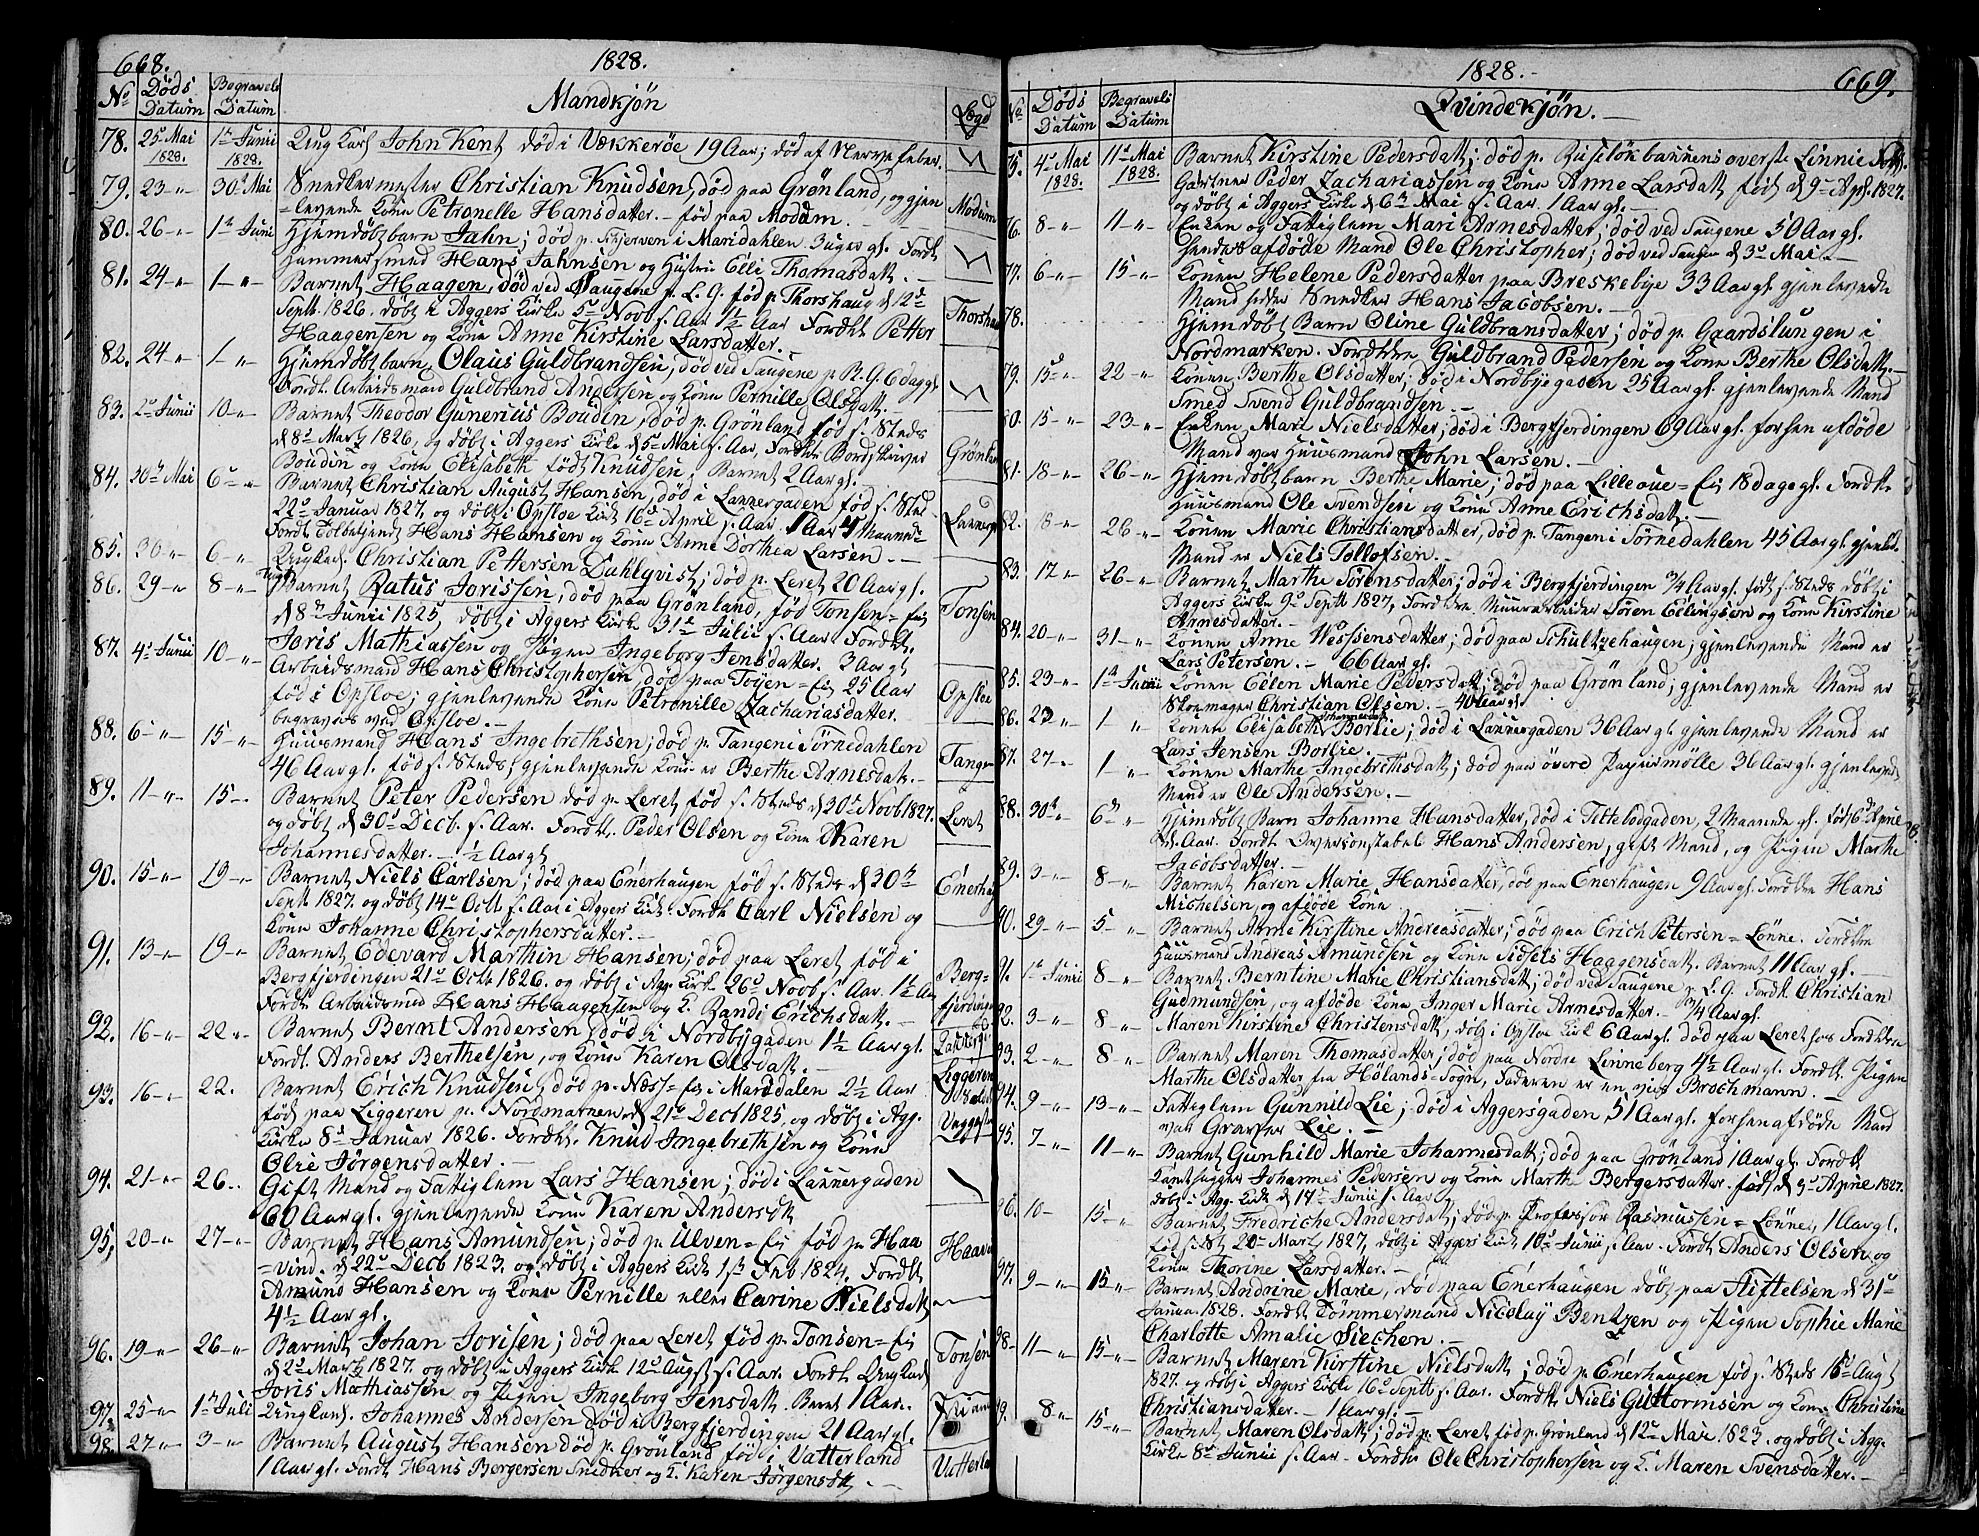 668.
1828.
No Döds Datum Begravels Datum Mandkjön Lægd
78. 25d Mai 1828. 1te Junii 1828. Ung Karl John Kent död i Vækkeröe 19 Aar; död af Nerve Feber.
79. 23 -"- 30d Mai Snedkermester Christian Knudsen, död paa Grönland, og gjen Modum
=levende Kone Petronelle Hansdatter. - född paa Modum
80. 26 -"- 1te Junii Hjemdöbt barn Jahn; död p. Skjerven i Maridahlen 3 uger gl. Fordt
Hammersmed Hans Jahnsen og Hustru Elli Thomasdatt. -
81. 24 -"- 1 -"- Barnet Haagen, död ved Saugene p. L. G. fød p. Thorshaug d 12d Thorshau
Septb. 1826. döbt i Aggers Kirke 5d Novb f. Aar 1½ Aar Fordt Petter
Haagensen og Kone Anne Kirstine Larsdatter.
82. 24 -"- 1 -"- Hjemdöbt barn Olaus Guldbrandsen, död ved Saugene p. R. G. 6 dage gl.
Fordt. Arbeidsmand Guldbrand Andersen og Kone Pernille Olsdatt. -
83. 2d Junii 10 -"- Barnet Theodor Gunerius Boudin, död p. Grönland fød f. Steds Grönlan
d 8d Martz 1826, og döbt i Aggers Kirke d 5d Mai f. Aar, Fordt
Boudin og Kone Elisabeth født Knudsen, Barnet 2 Aar gl.
84. 30d Mai 6 -"- Barnet Christian August Hansen, död i Lakkergaden fød f. Sted
22d Januar 1827, og döbt i Opsloe Kirk 16d April f. Aar. 1 Aar 4 Maane=
Fordt. Hans Hansen og Kone Anne Dorthea Larsen. -
85. 30 -"- 6 -"- Ungkarl Christian Pettersen Dahlqvist; död p. Leret 20 Aar gl.
86. 29 -"- 8 -"- Barnet Ratus Jorissen, död paa Grönland, fød Tonsen=Eie Tonsen
d 8d Junii 1825, döbt i Aggers Kirke 31d Julii f. Aar Fordt.
Joris Mathiassen og Pigen Ingeborg Jensdatter. 3 Aar gl
87. 4d Junii 10 -"- Arbeidsmand Hans Christophersen, död paa Töyen=Eie 25 Aar Opsloe
fød i Opsloe; gjenlevende Kone Petronille Zachariasdatter.
begraves ved Opsloe. -
88. 6 -"- 15 -"- Huusmand Hans Ingebrethsen; död p. Tangen i Sörnedahlen Tangen
46 Aar gl. fød f. Steds, gjenlevende Kone er Berthe Arnesdatt. -
89. 11 -"- 15 -. Barnet Peter Pedersen död p. Leret fød f. Steds d 30d Novb 1827. Leret
og döbt d 30d Decb. f. Aar. Fordt. Peder Olsen og Kone Karen
Johannesdatter. - ½ Aar gl
90. 15 -"- 19 -"- Barnet Niels Carlsen; död paa Enerhaugen fød f. Steds d 30te Enerhaug
Septb 1827. og döbt 14d Octb f. Aar i Aggers Kirk. Fordt Carl Nielsen og
Kone Johanne Christophersdatter. -
91. 13 -"- 19 -"- Barnet Edevard Marthin Hansen; död paa Leret fød i Berg=
Bergfjerdingen 21d Octb 1826. og döbt i Agg. Kirke 26d Novb f. Aar. 1½ Aar fjerdingen
Fordt. Arbeidsmd Hans Haagensen og K. Randi Erichsdatt. -
92. 16 -"- 22 -"- Barnet Bernt Andersen, död i Nordbygaden 1½ Aar gl.
Fordt. Anders Berthelsen, og Kone Karen Olsdatt. -
93. 16 -"- 22. Barnet Erich Knudsen, död p. Næss=Eie i Maridalen 2½ Aar Liggeren
fød paa Liggeren p. Nordmarken d 21d Decb 1825, og döbt i Agg.
Kirke 8d Januar 1826. Fordt. Knud Ingebrethsen og Kone
Olie Jörgensdatter. -
94. 21 -"- 26.. Gift Mand og Fattiglem Lars Hansen; död i Lakkergaden
60 Aar gl. gjenlevende Kone Karen Andersdt
95. 20 -"- 27 -"- Barnet Hans Amundsen; död p. Ulven=Eie fød p. Haa
=vind. d 22d Decb 1823, og döbt i Aggers Kirk 1ste Feb 1824. Fordt
Amund Hansen og Kone Pernille eller Carine Nielsdatt
4½ Aar gl.
96. 19 -"- 26 -"- Barnet Johan Jorisen; död paa Leret fød p. Tonsen=Eie Tonsen
d 2d Martz 1827. og döbt i Aggers Kirke 12d Augst f. Aar. Fordt. Ungkarl
Joris Mathiassen og Pigen Ingeborg Jensdatt. Barnet 1 Aar.
97. 25 -"- 1te Juli Ungkarl. Johannes Andersen död i Bergfjerdingen 21 Aar gl.
98. 27 -"- 3 -"- Barnet August Hansen död p. Grönland, fød i Vatterland Vatterlan
1 Aar gl. Fordt. Hans Bergersen Snedker og K. Karen Jörgensdt. -
669.
1828. -
No Döds Datum Begravels Datum Qvindekjön. -
75. 4d Mai 1828. 11d Mai 1828. Barnet Kirstine Pedersdatt; död p.
Gartner Peder Zachariassen og Kone Anne Larsdatt fød d 9d Apl. 1827.
og döbt i Aggers Kirke d 6d Mai f. Aar. 1 Aar gl. -
76. 8 -"- 11 -"- Enken og Fattiglem Mari Arnesdatter; död ved Saugene 50 Aar gl.
hendes afdöde Mand Ole Christopher; död ved Saugen d 3d Mai. -
77. 6 -"- 15 -"- Konen Helene Pedersdatter paa Breskebye 33 Aar gl. gjenlevende
Mand Snedker Hans Jacobsen. -
78. Hjemdöbt Barn Oline Guldbransdatter; död p. Gaardslungen i
Nordmarken. Fordldre Guldbrand Pedersen og Kone Berthe Olsdatt. -
79. 15 -"- 22 -"- Konen Berthe Olsdatter; död i Nordbyegaden 25 Aar gl. gjenlevende Mand
Smed Svend Guldbrandsen. -
80. 15 -"- 23 -"- Enken Mari Nielsdatter; död i Bergfjerdingen 69 Aar gl. forhen afdöde
Mand var Huusmand John Larsen. -
81. 18 -"- 26 -"- Hjemdöbt barn Berthe Marie; död paa Lilleoue=Eie 18 dage gl. Fordt.
Huusmand Ole Svendsen og Kone Anne Erichsdatt. -
82. 18 -"- 26 -"- Konen Marie Christiansdatter, död p. Tangen i Sörnedahlen 45 Aar gl. gjenlev.
Mand er Niels Tollofsen. -
83. 17 -"- 26 -"- Barnet Marthe Sörensdatter; död i Bergfjerdingen ¾ Aar gl. fød f. Steds döbt i
Aggers Kirke 9d Septb 1827, Fordldre Muurarbeider Sören Ellingsen og Kone Kirstine
Arnesdatter. -
84. 20 -"- 31 -"- Konen Anne Wessensdatter; död paa Schultzehaugen; gjenlevende Mand er
Lars Petersen. - 66 Aar gl.
85. 23 -"- 1te Junii Konen Ellen Marie Pedersdatt; död paa Grönland; gjenlevende Mand er
Skomager Christian Olsen. - 40 Aar gl.
86. 23 -"- 1 -"- Konen Elisabeth Johannesdatt Borlie; död i Lakkergaden 36 Aar gl. gjenlevende Mand er
Lars Jensen Borlie. -
87. 27 -"- 1 -"- Konen Marthe Ingebrethsdatt; död paa övere Papiermölle 36 Aar gl. gjenlevende
Mand er Ole Andersen. -
88. 30d -"- 6te -"- Hjemdöbt Barn Johanne Hansdatter, död i Fittelsdgaden, 2 Maaneder gl. fød 6d Aprile
f. Aar. Fordt. Hans Andersen, gift Mand, og Pigen Marthe
Jacobsdatter. -
89. 3 -"- 8 -"- Barnet Karen Marie Hansdatter, död paa Enerhaugen 9 Aar gl. Fordldre Hans
Michelsen og afdöde Kone
90. 29 -"- 5 -"- Barnet Anne Kirstine Andreasdatter; död paa Erich Petersen=Lönne. Fordldre
Huusmand Andreas Amundsen og Kone Sidsels Haagensdatt. Barnet 11 Aar gl. -
91. 1te Junii 8 -"- Barnet Berntine Marie Christiansdatt; död ved Saugene p. L. G. Fordt. Christian
Gudmundsen, og afdöde Kone Inger Marie Arnesdatter. - ¾ Aar gl.
92. 3 -"- 8 -"- Maren Kirstine Christensdatt, döbt i Opsloe Kirk 6 Aar gl. död paa Leret hos Fordldre
93. 2 -"- 8 -"- Barnet Maren Thomasdatter; död paa Nordre Linneberg 4½ Aar gl. Fordt. Pigen
Marthe Olsdatter fra Hölands=Sogn, Faderen er en vis Brochmann. -
94. 9 -"- 13 -"- Fattiglem Gunnild Lie; död i Aggersgaden 51 Aar gl. forhen afdöde Mand
var Graver Lie. -
95. 7 -"- 11 -"- Barnet Gunhild Marie Johannesdatt; död paa Grönland 1 Aar gl. Fordt
Johannes Pedersen og Kone Marthe Bergersdatter. fød d 3d Aprile 1827.
döbt i Agg. Kirk d 17d Junii f. Aar
96. 10 - 15 -"- Barnet Fredriche Andersdatt; död p. Professor Rasmussen=Lönne, 1 Aar gl.
fød f. St. 20d Martz 1827, döbt i Aggers Kirk 10d Junii f. Aar. Fordt Anders Olsen og
Kone Thorine Larsdatter. -
97. 9 -"- 15 -"- Barnet Andrine Marie, död paa Enerhaugen döbt paa Stiftelsen d 31d
Januar 1828. Fordt. Tömmermand Nicolay Bentzen og Pigen Sophie Marie
Charlotte Amalie Siechen. -
98. 11 -"- 15 -"- Barnet Maren Kirstine Nielsdatt; död p. Enerhaugen fød f. Steds 16d Augt
1827. og döbt i Aggers Kirke 16d Septb f. Aar. Fordt. Niels Guttormsen og Kone Christine
Christiansdatter. - 1 Aar gl. -
99. 8 -"- 15 -"- Barnet Maren Olsdatt; död p. Leret fød p. Grönland d 12d Mai 1823. og döbt i Agg.
Kirke 8d Junii f. Aar. Fordldre Ole Christophersen og K. Maren Svensdatter. -